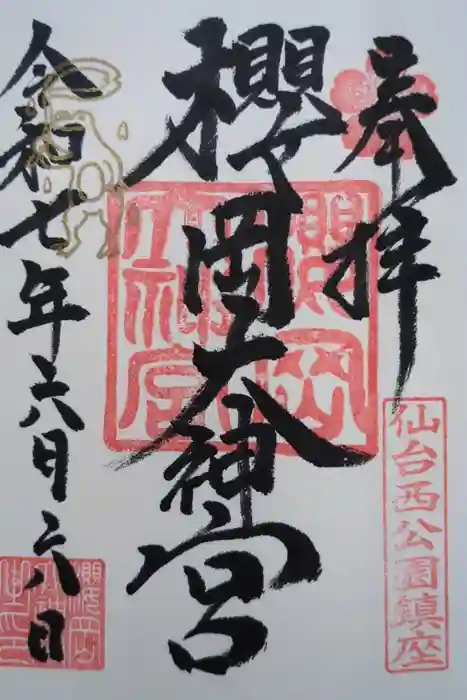 奉拝
仙台西公園鎮座
櫻岡大神宮
櫻岡大神宮
令和七年六月六日